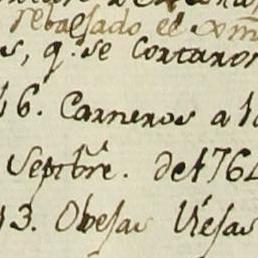 rebajado el
s, q.e se cortaron
16. Carneros a 1
Septbre. de 176
13. Obejas Viejas